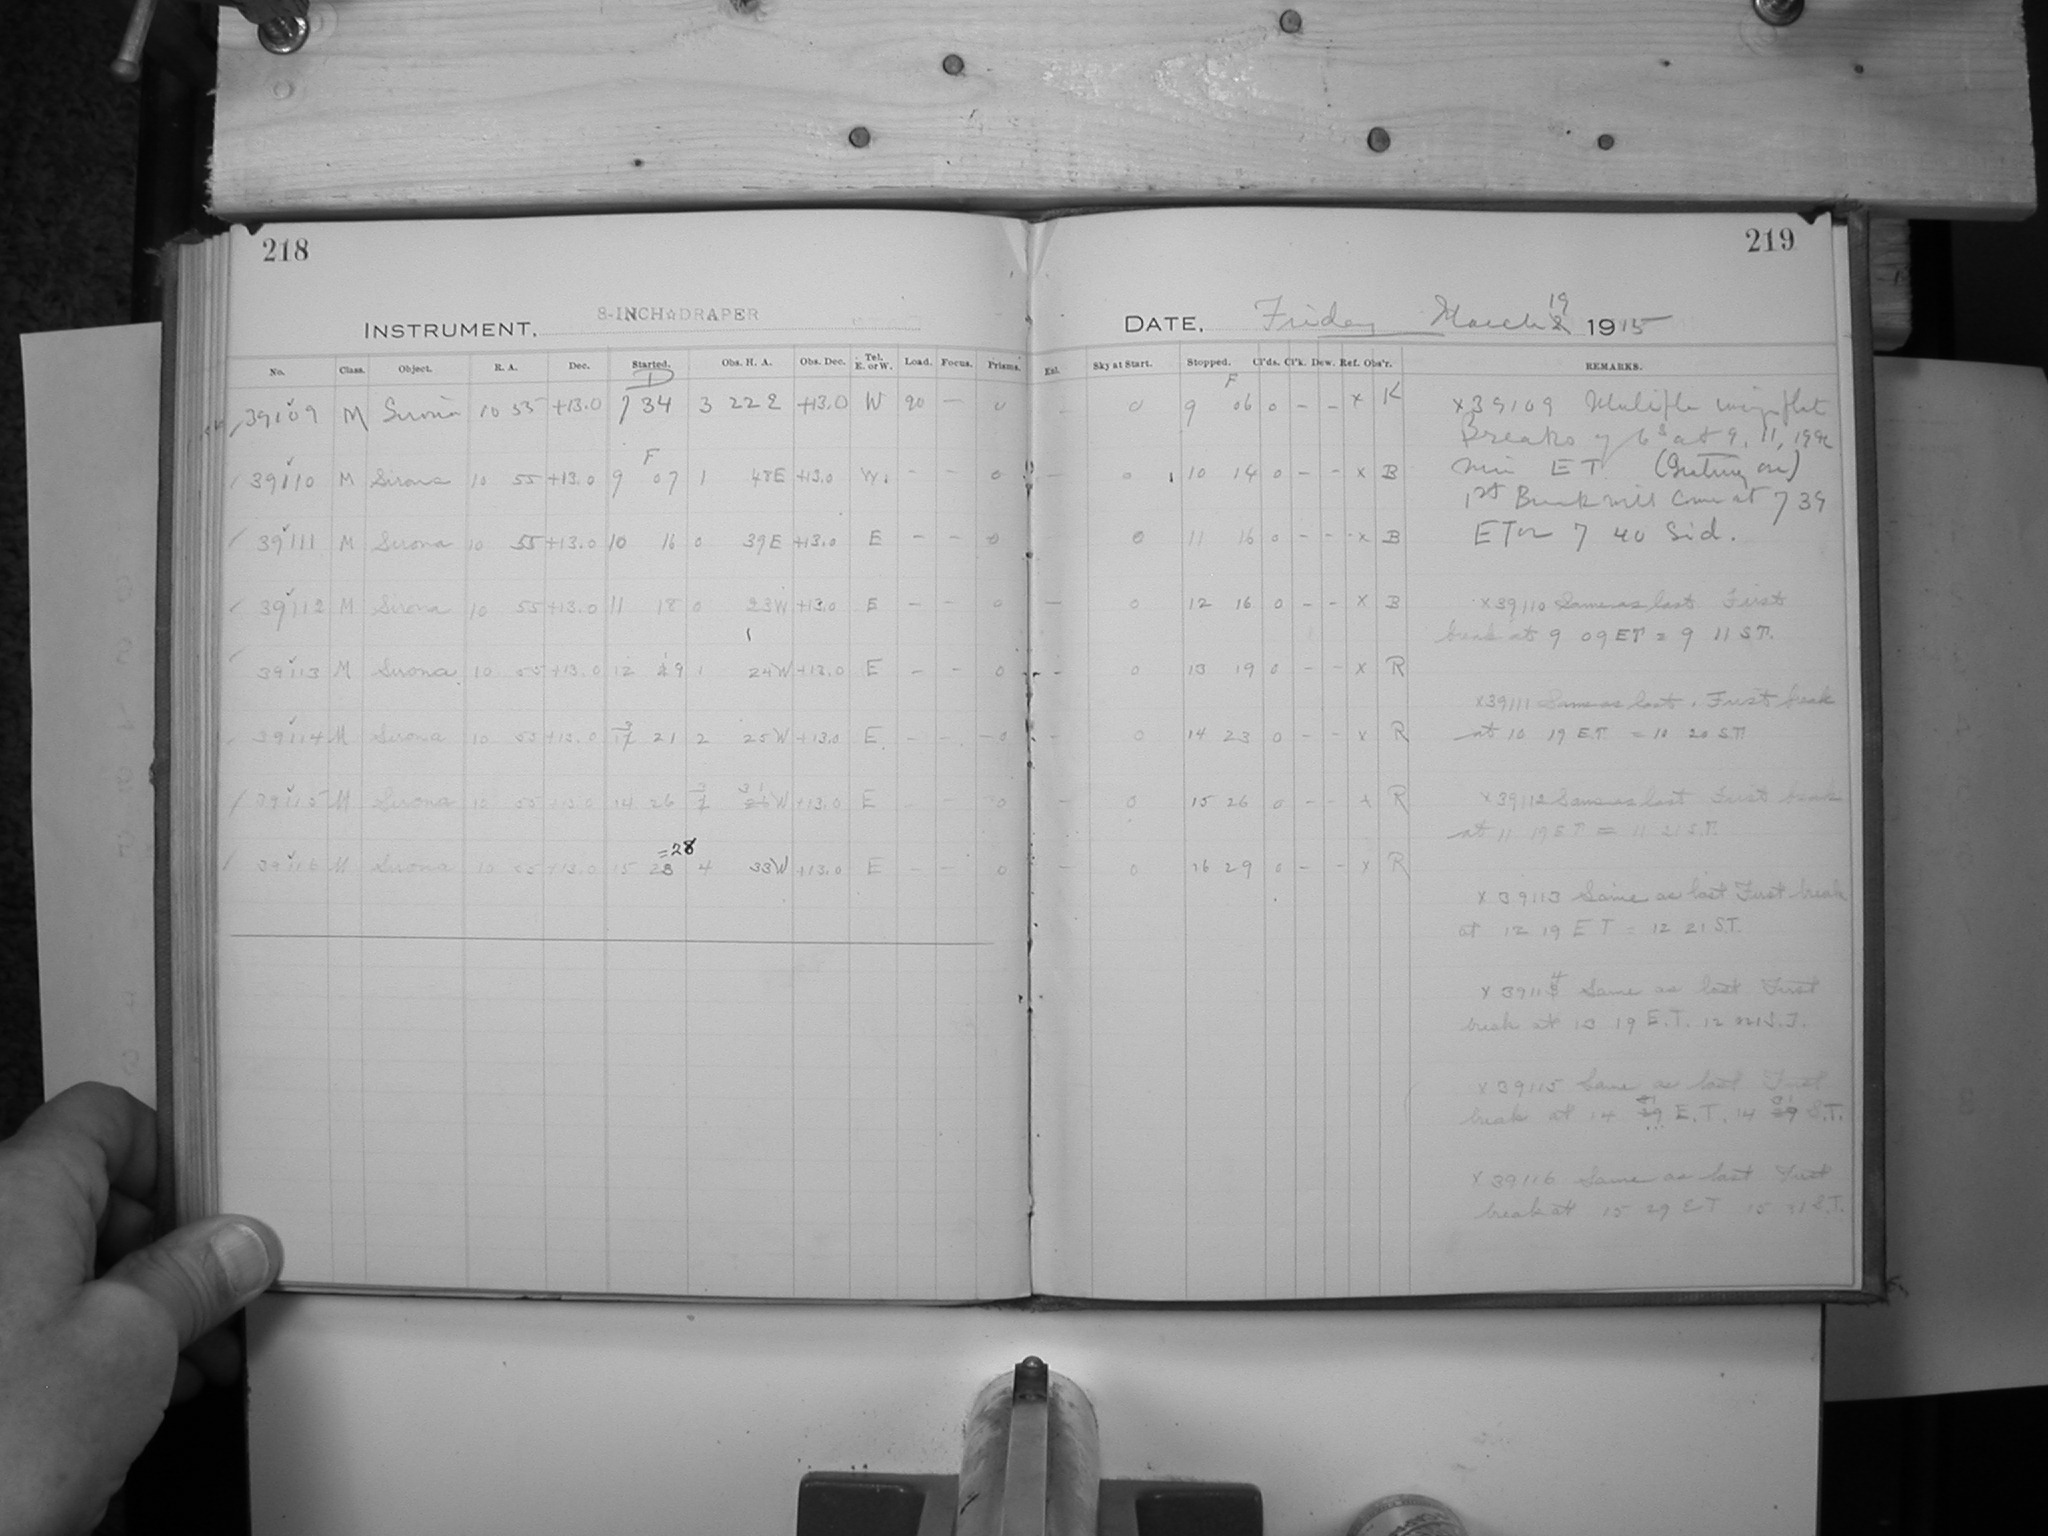 218
219
INSTRUMENT, 8-INCH☆DRAPER
DATE, Friday March 19 1915
No. Class. Object. R. A. Dec. Started. Obs. H. A. Obs. Dec. Tel. E. or W. Load. Focus. Prisms.
Exl. Sky at Start. Stopped. Cl'ds. Cl'k. Dew. Ref. Obs'r. REMARKS.
D
F
39109 M Sirona 10 55 +13.0 7 34 3 22 E +13.0 W 90 — 0 — 0 9 06 0 - - x K
F
39110 M Sirona 10 55 +13.0 9 07 1 48E +13.0 W. - - 0 — 0 10 14 0 - - x B
39111 M Sirona 10 55 +13.0 10 16 0 39E +13.0 E - - 0 0 11 16 0 - - x B
39112 M Sirona 10 55 +13.0 11 18 0 23W +13.0 E - - 0 — 0 12 16 0 - - x B
39113 M Sirona 10 55 +13.0 12 19 1 24W +13.0 E - - 0 - 0 13 19 0 - - x R
39114 M Sirona 10 55 +13.0 13 21 2 25W +13.0 E - - 0 - 0 14 23 0 - - x R
39115 M Sirona 10 55 +13.0 14 26 3 31W +13.0 E - - 0 - 0 15 26 0 - - x R
=28
39116 M Sirona 10 55 +13.0 15 28 4 33W +13.0 E - - 0 - 0 16 29 0 - - x R
x39109 Multiple
Breaks of 6s at 9, 11, 19
min ET
1st Break will come at 7 39
ET or 7 40 Sid.
x39110 Same as last First
break at 9 09 ET = 9 11 S.T.
x39111 Same as last. First break
at 10 19 E.T. = 10 20 S.T.
x39112 Same as last First break
at 11 19 E T = 11 21 S.T.
x 39113 Same as last First break
at 12 19 E T = 12 21 S.T.
x 39114 Same as last First
break at 13 19 E.T. S.T.
x 39115 Same as last First
break at 14 E.T. 14 S.T.
x 39116 Same as last First
break at 15 29 E T 15 31 S.T.